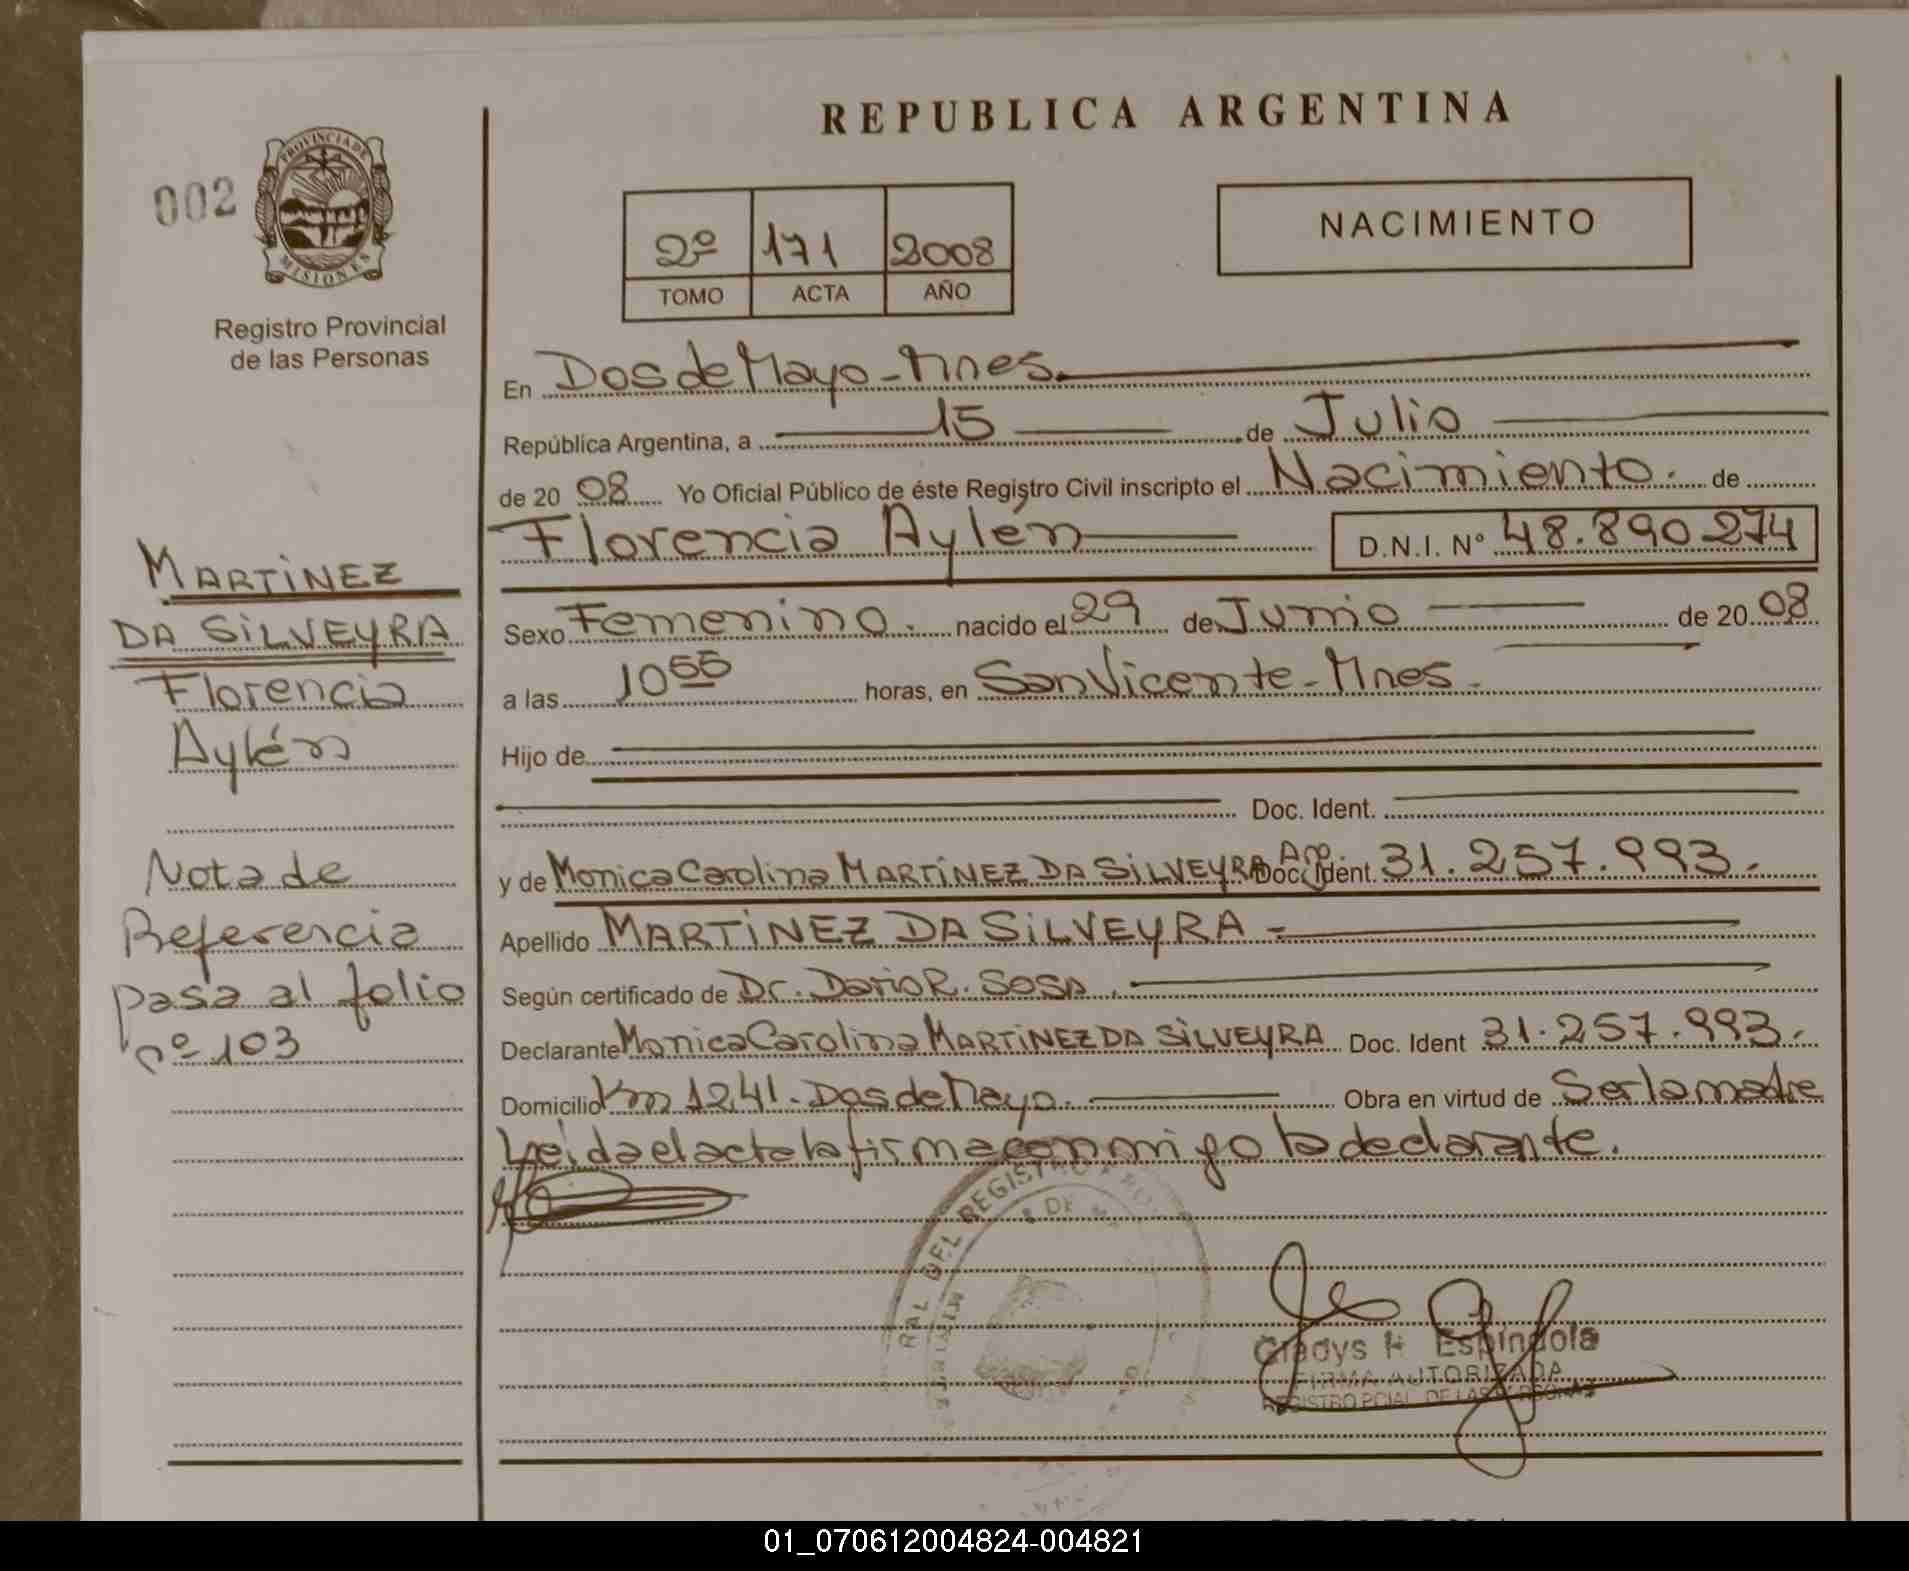 REPUBLICA ARGENTINA
002
PROVINCIA DE
MISIONES
Registro Provincial
de las Personas
2º 171 2008
TOMO ACTA AÑO
NACIMIENTO
En Dos de Mayo - Mnes.
República Argentina, a 15 de Julio
de 20 08 Yo Oficial Público de éste Registro Civil inscripto el Nacimiento. de
Florencia Aylén D.N.I. Nº 48.890.274
Sexo Femenino. nacido el 29 de Junio de 20 08
a las 10 55 horas, en San Vicente - Mnes.
Hijo de
Doc. Ident.
y de Monica Carolina MARTiNEZ DA SiLVEYRA Arg. Doc. Ident. 31.257.993.
Apellido MARTiNEZ DA SiLVEYRA
Según certificado de Dr. Dario R. Sosa.
Declarante Monica Carolina MARTiNEZ DA SiLVEYRA Doc. Ident 31.257.993.
Domicilio Km 1241. Dos de Mayo. Obra en virtud de Ser la madre
Leída el acta la firma conmigo la declarante.
MARTiNEZ
DA SiLVEYRA
Florencia
Aylén
Nota de
Referencia
pasa al folio
nº 103
RAL DEL REGISTRO
Gladys H Espíndola
FIRMA AUTORIZADA
REGISTRO PCIAL. DE LAS PERSONAS
01_070612004824-004821